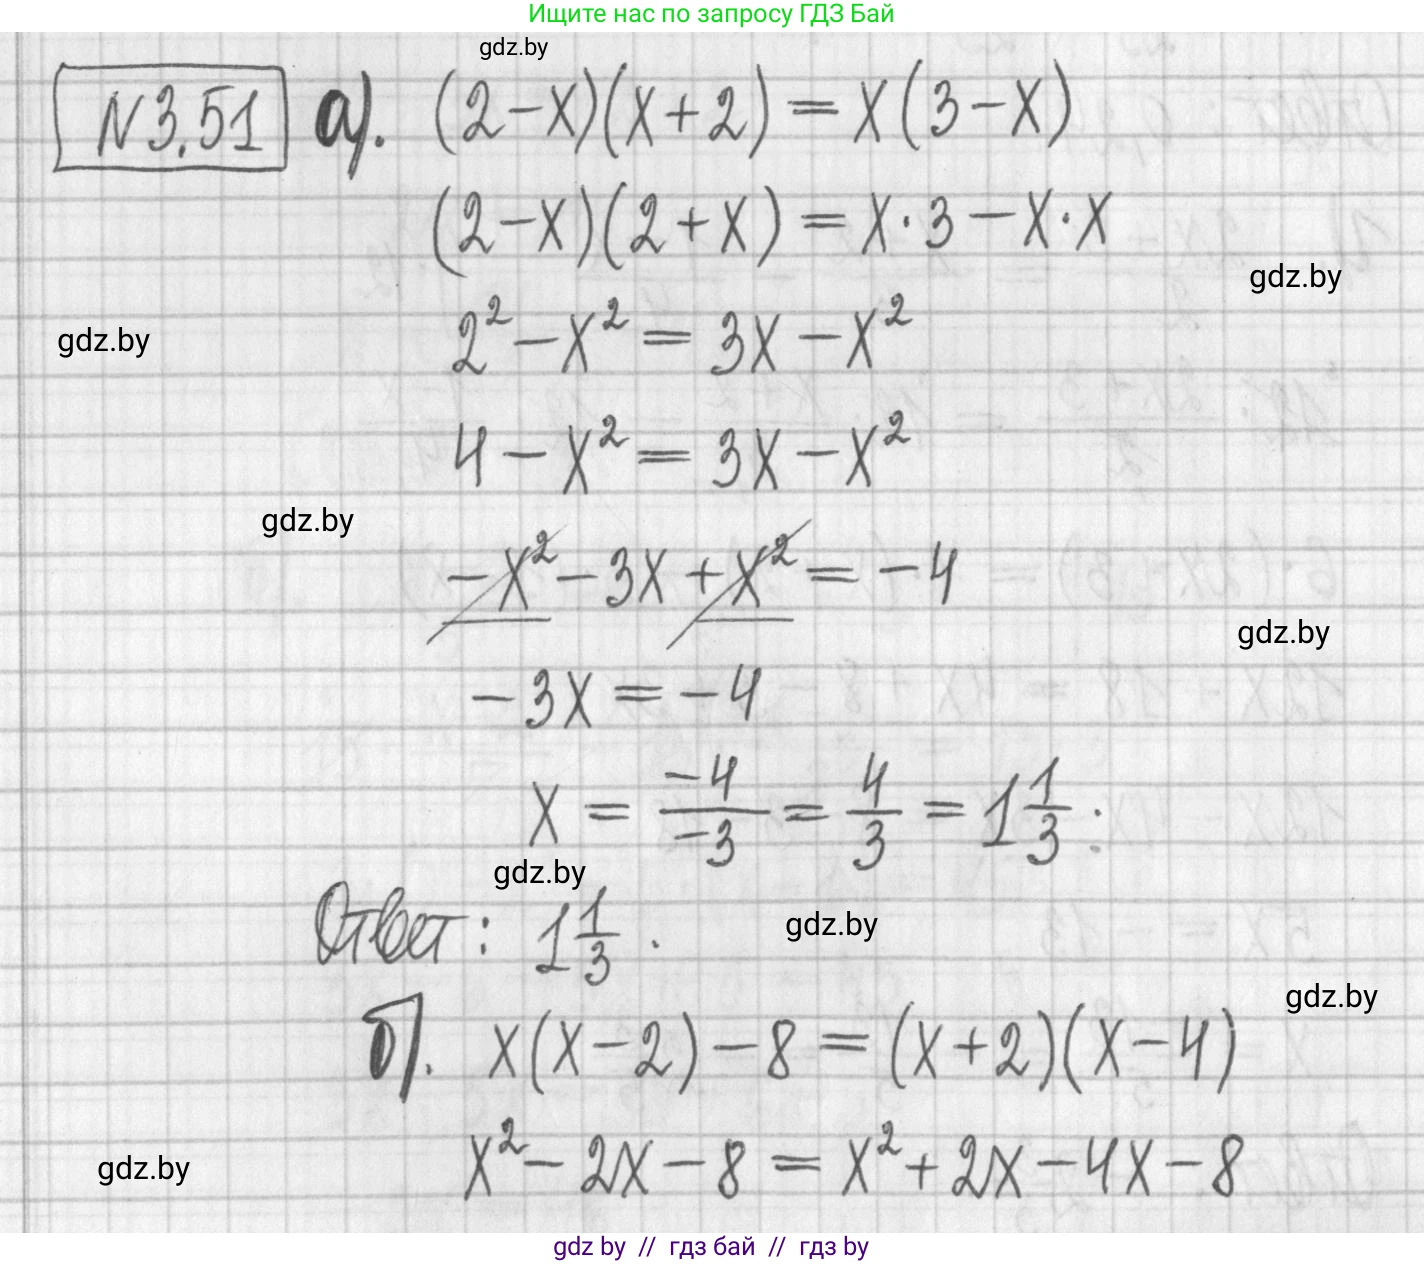 Ищите нас по запросу ГДЗ Бай
gdz.by
N 3.51 а). (2-x)(x+2) = x(3-x)
(2-x)(2+x) = x·3-x·x
gdz.by
2²-x² = 3x-x²
gdz.by
4-x² = 3x-x²
gdz.by
-x²-3x+x² = -4
gdz.by
-3x = -4
x = -4/-3 = 4/3 = 1 1/3 :
gdz.by
Ответ: 1 1/3 .
gdz.by
gdz.by
б). x(x-2)-8 = (x+2)(x-4)
x²-2x-8 = x²+2x-4x-8
gdz.by
gdz by // гдз бай // гдз by